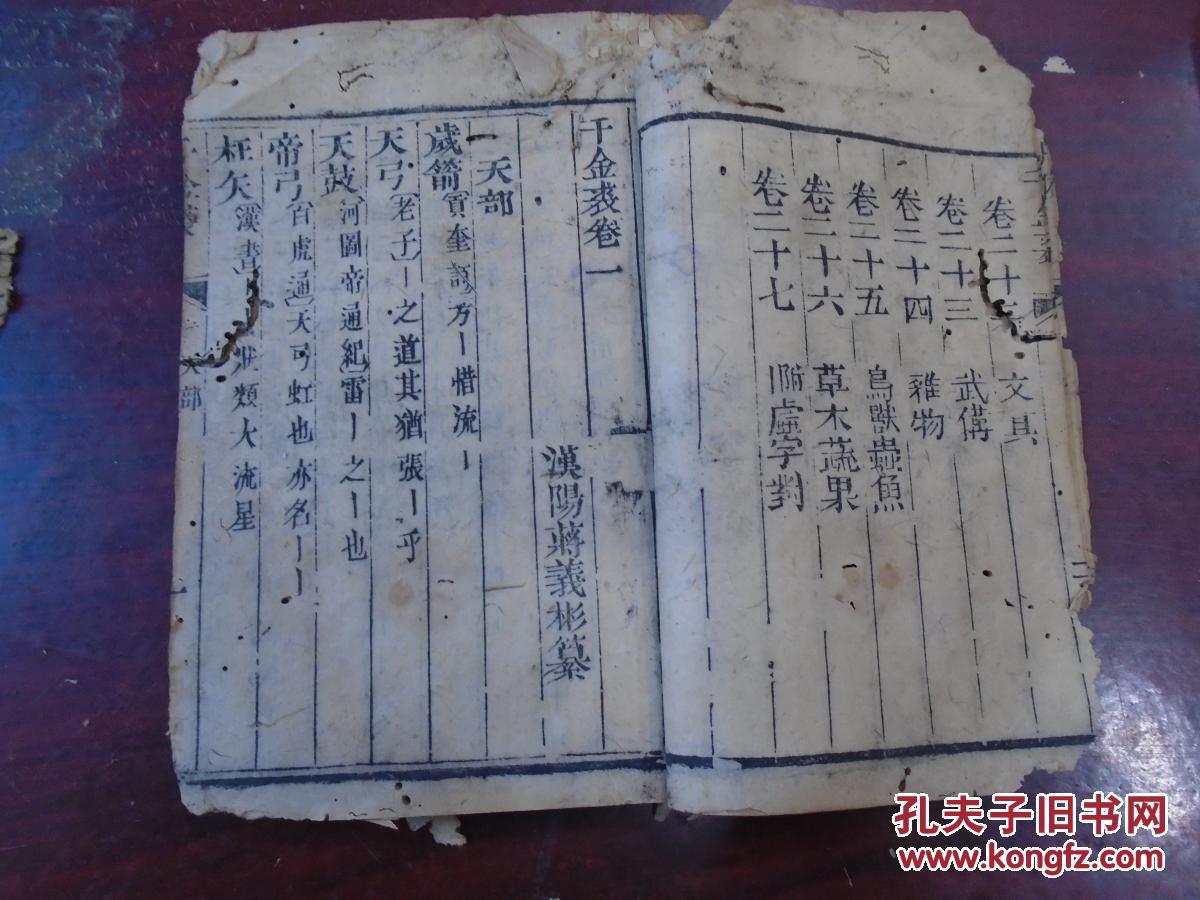 卷二十二 文具
卷二十三 武備
卷二十四 雜物
卷二十五 鳥獸蟲魚
卷二十六 草木蔬果
卷二十七 附虛字對
千金裘卷一
漢陽蔣義彬纂
一天部
歲箭 方丨惜流丨
天弓 老子丨之道其猶張丨乎
天鼓 河圖帝通紀 雷丨之丨也
帝弓 白虎通 天弓虹也亦名丨丨
枉矢 漢書 狀類大流星
孔夫子旧书网
www.kongfz.com